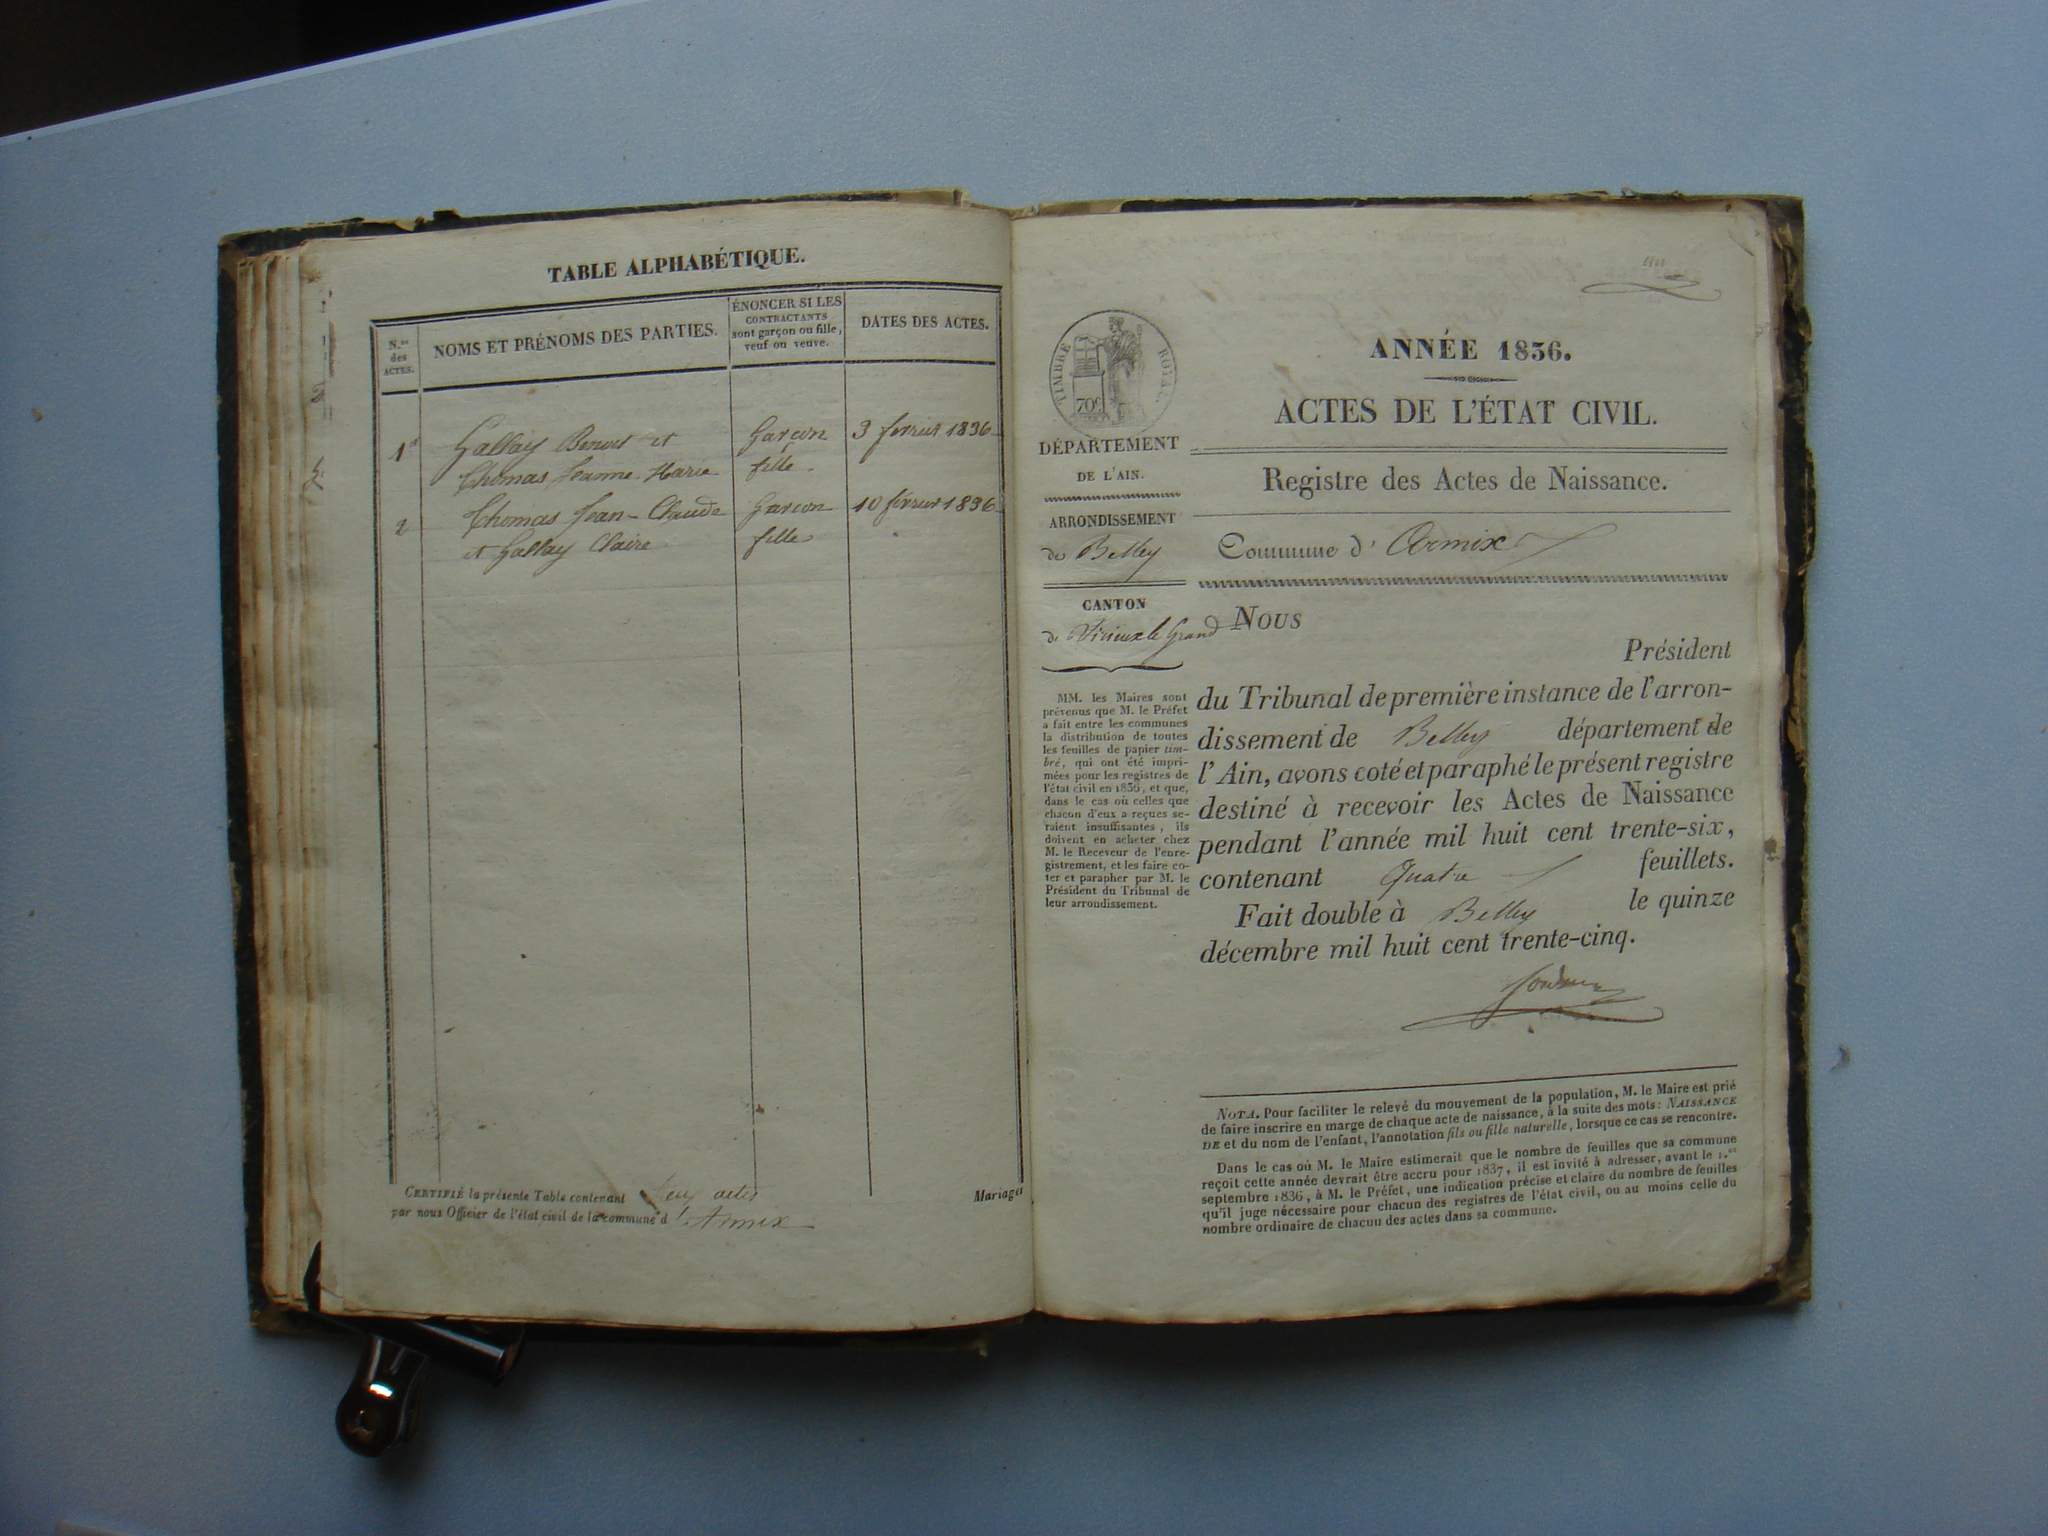 TABLE ALPHABÉTIQUE.
N.os des ACTES.
NOMS ET PRÉNOMS DES PARTIES.
ÉNONCER SI LES
CONTRACTANTS
sont garçon ou fille,
veuf ou veuve.
DATES DES ACTES.
1er Gallay Benoit et Garçon 3 février 1836
Thomas Jeanne-Marie fille.
2 Thomas Jean-Claude Garçon 10 février 1836
et Gallay Claire fille
CERTIFIÉ la présente Table contenant deux actes Mariages
par nous Officier de l'état civil de la commune d'Armix
TIMBRE ROYAL.
70c
DÉPARTEMENT
DE L'AIN.
ARRONDISSEMENT
de Belley
CANTON
de Virieux le Grand
MM. les Maires sont
prévenus que M. le Préfet
a fait entre les communes
la distribution de toutes
les feuilles de papier tim-
bré, qui ont été impri-
mées pour les registres de
l'état civil en 1836, et que,
dans le cas où celles que
chacun d'eux a reçues se-
raient insuffisantes, ils
doivent en acheter chez
M. le Receveur de l'enre-
gistrement, et les faire co-
ter et parapher par M. le
Président du Tribunal de
leur arrondissement.
ANNÉE 1836.
ACTES DE L'ÉTAT CIVIL.
Registre des Actes de Naissance.
Commune d'Armix
NOUS
Président
du Tribunal de première instance de l'arron-
dissement de Belley département de
l'Ain, avons coté et paraphé le présent registre
destiné à recevoir les Actes de Naissance
pendant l'année mil huit cent trente-six,
contenant Quatre feuillets.
Fait double à Belley le quinze
décembre mil huit cent trente-cinq.
NOTA. Pour faciliter le relevé du mouvement de la population, M. le Maire est prié
de faire inscrire en marge de chaque acte de naissance, à la suite des mots: NAISSANCE
DE et du nom de l'enfant, l'annotation fils ou fille naturelle, lorsque ce cas se rencontre.
Dans le cas où M. le Maire estimerait que le nombre de feuilles que sa commune
reçoit cette année devrait être accru pour 1837, il est invité à adresser, avant le 1.er
septembre 1836, à M. le Préfet, une indication précise et claire du nombre de feuilles
qu'il juge nécessaire pour chacun des registres de l'état civil, ou au moins celle du
nombre ordinaire de chacun des actes dans sa commune.